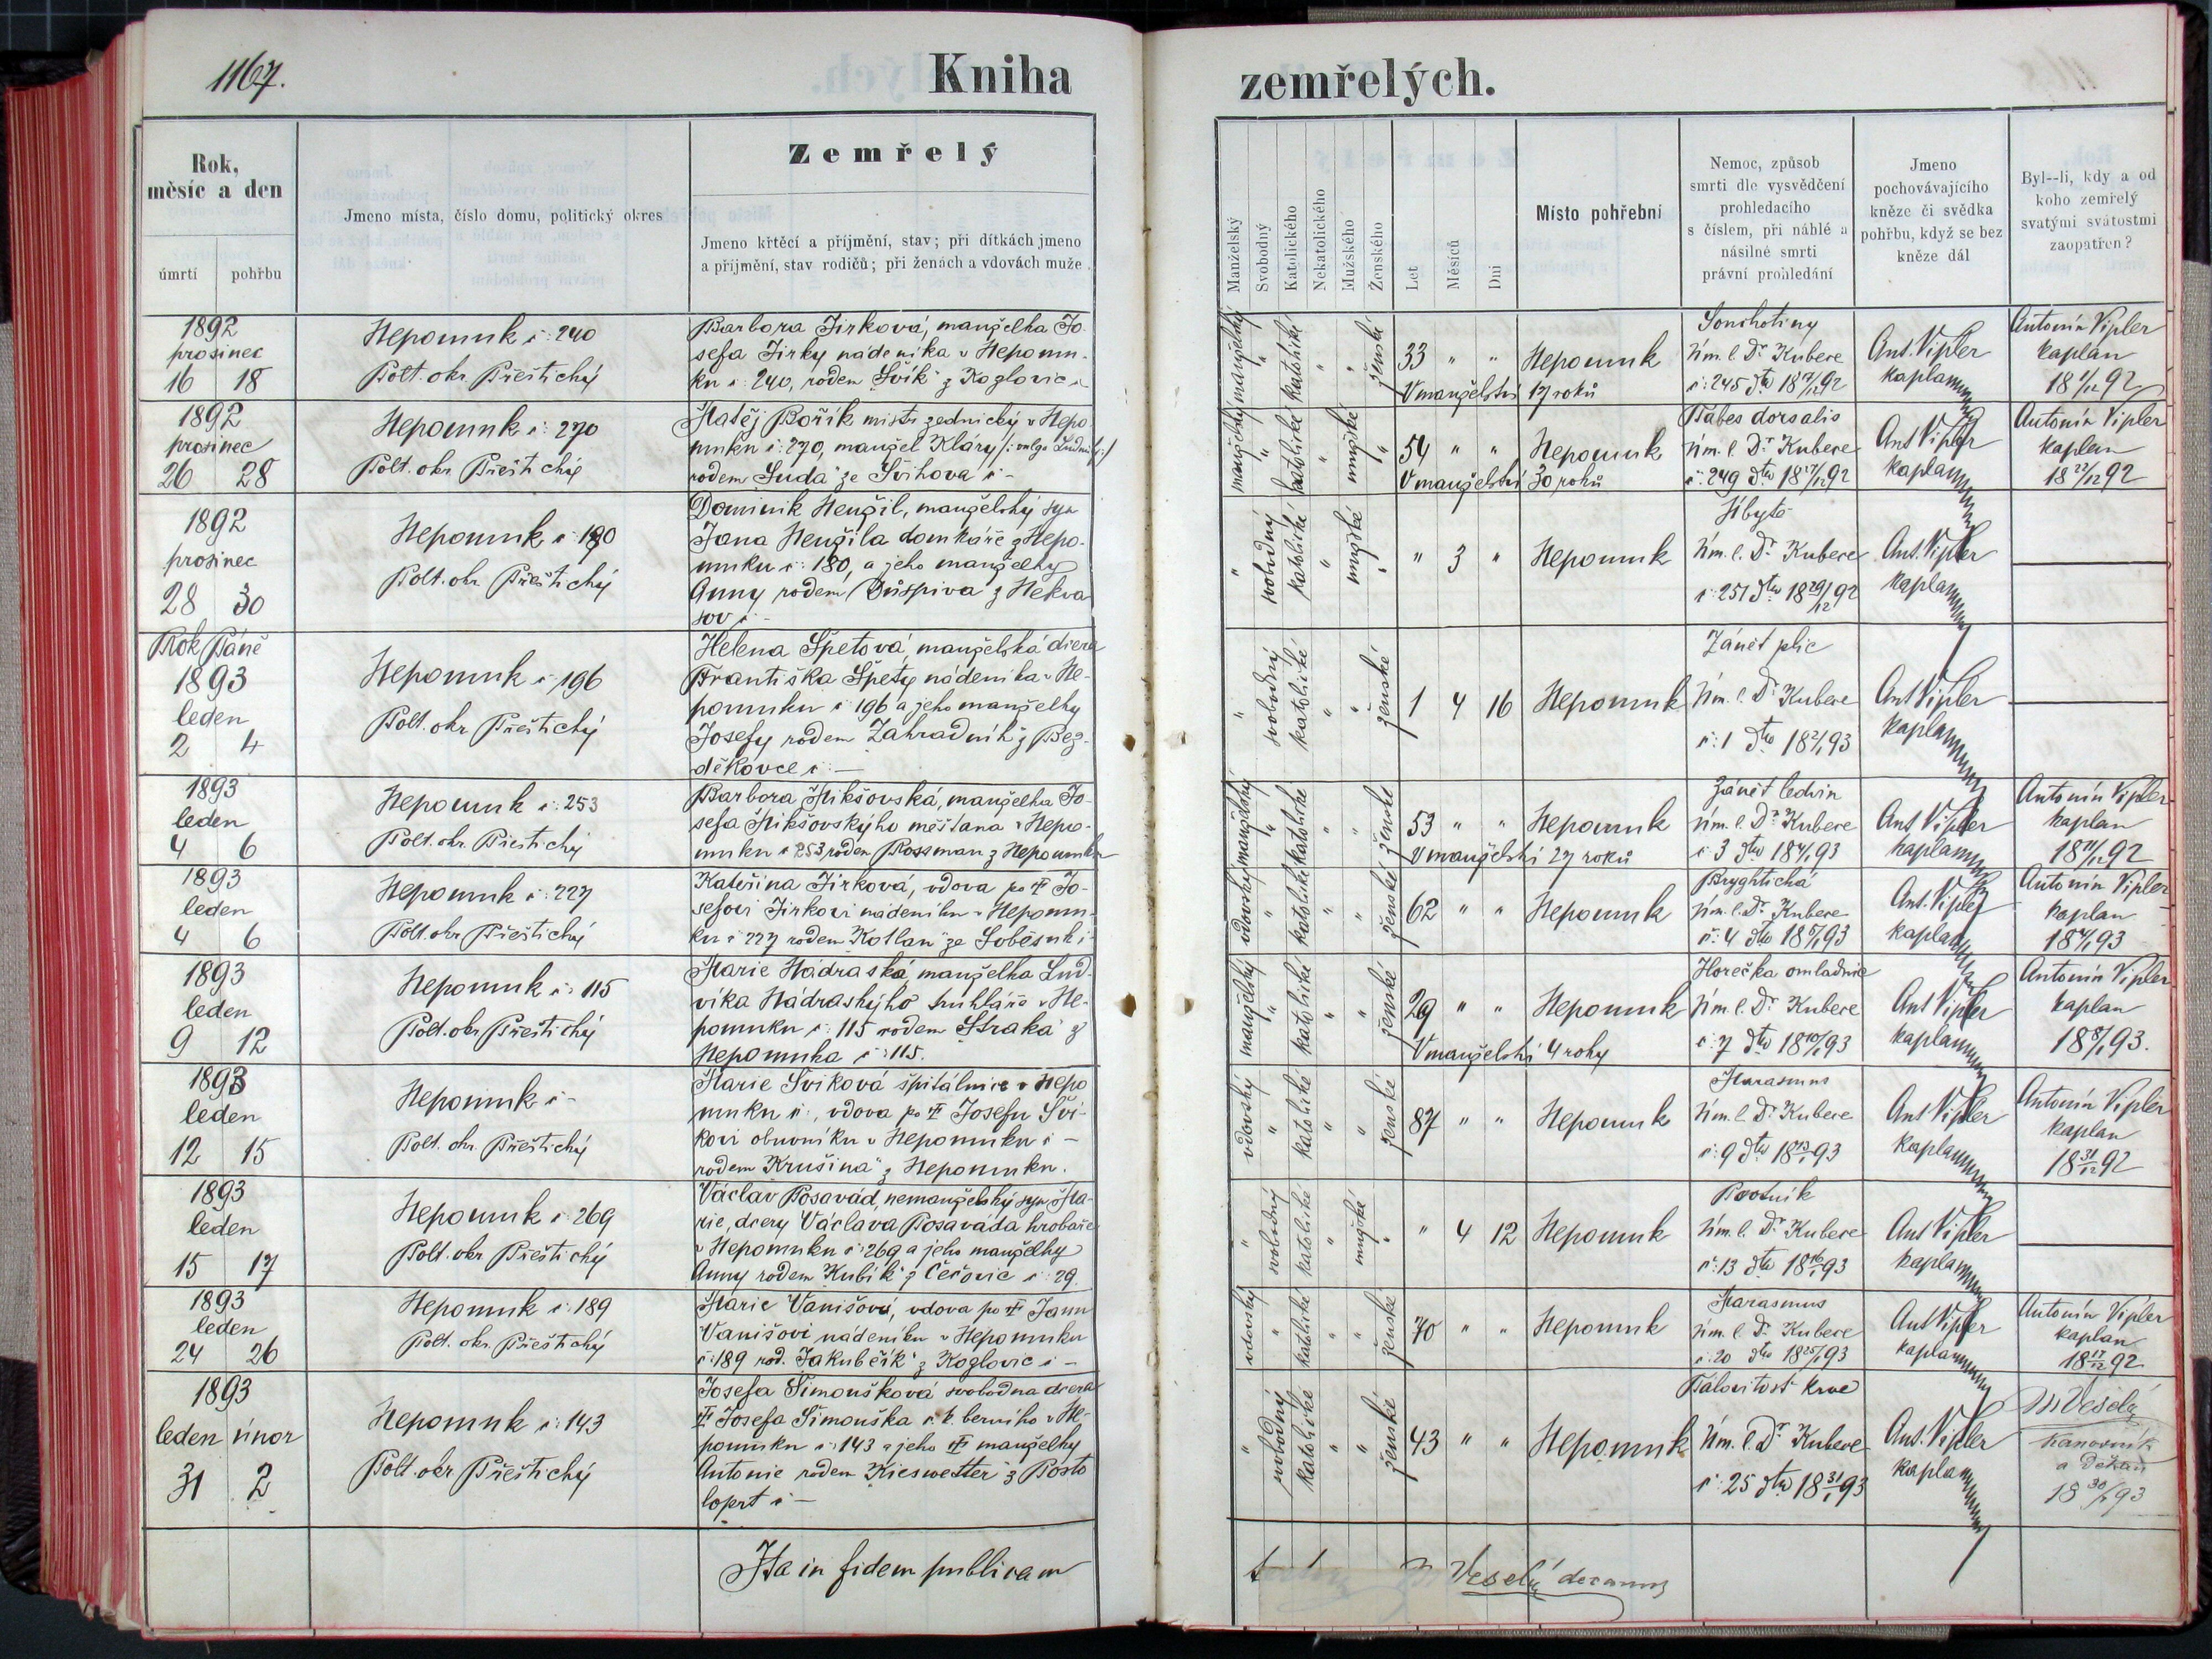 1167.
Kniha zemřelých.
Rok, měsíc a den
úmrtí
pohřbu
Jmeno místa, číslo domu, politický okres
Zemřelý
Jmeno křtěcí a příjmění, stav; při dítkách jmeno
a příjmění, stav rodičů; při ženách a vdovách muže
Manželský
Svobodný
Katolického
Nekatolického
Mužského
Ženského
Let
Měsíců
Dní
Místo pohřební
Nemoc, způsob
smrti dle vysvědčení
prohledacího
s číslem, při náhlé a
násilné smrti
právní prohledání
Jmeno
pochovávajícího
kněze či svědka
pohřbu, když se bez
kněze dál
Byl--li, kdy a od
koho zemřelý
svatými svátostmi
zaopatřen?
1892
prosinec
16 18
Nepomuk č: 240
Polt. okr. Přeštický
Barbora Jirková, manželka Jo-
sefa Jirky nádeníka v Nepomu-
ku č: 240, rodem Švík z Kozlovic č
manželský " katolické " " ženské
33 " "
V manželství 17 roků
Nepomuk
Souchotiny
Úm. l. Dr. Kubere
č: 245 dto 18 17/12 92
Ant. Vipler
kaplan
Antonín Vipler
kaplan
18 1/12 92
1892
prosinec
26 28
Nepomuk č: 270
Polt. okr. Přeštický
Matěj Bořík mistr zednický v Nepo
muku č: 270, manžel Kláry /: vulgo Ludmily :/
rodem Suda ze Švihova č -
manželský " katolické " mužské "
54 " "
V manželství 30 roků
Nepomuk
Tabes dorsalis
Úm. l. Dr. Kubere
č: 249 dto 18 27/12 92
Ant Vipler
kaplan
Antonín Vipler
kaplan
18 22/12 92
1892
prosinec
28 30
Nepomuk č 180
Polt. okr Přeštický
Dominik Neužil, manželský syn
Jana Neužila domkáře z Nepo-
muku č: 180, a jeho manželky
Anny rodem Dušpiva z Nekva
sov č -
" svobodný katolické " mužské "
" 3 "
Nepomuk
Úbytě
Úm. l. Dr. Kubere
č: 251 dto 18 29/12 92
Ant. Vipler
kaplan
Rok Páně
1893
leden
2 4
Nepomuk č 196
Polt. okr Přeštický
Helena Špetová, manželská dcera
Františka Špety nádeníka v Ne-
pomuku č 196 a jeho manželky
Josefy rodem Zahradník z Bez-
děkovce č: -
" svobodný katolické " " ženské
1 4 16
Nepomuk
Zánět plic
Úm. l. Dr. Kubere
č: 1 dto 18 2/1 93
Ant Vipler
kaplan
1893
leden
4 6
Nepomuk č: 253
Polt. okr. Přeštický
Barbora Mikšovská, manželka Jo-
sefa Mikšovskýho měšťana v Nepo-
muku č 253, rodem Rossman z Nepomuku
manželský " katolické " " ženské
53 " "
V manželství 27 roků
Nepomuk
Zánět ledvin
Úm. l. Dr. Kubere
č 3 dto 18 4/1 93
Ant. Vipler
kaplan
Antonín Vipler
kaplan
1893
leden
4 6
Nepomuk č: 227
Polt. okr Přeštický
Kateřina Jirková, vdova po † Jo-
sefovi Jirkovi nádeníku v Nepomu-
ku č 227 rodem Kotlan ze Soběsuk č
vdovský " katolické " " ženské
62 " "
Nepomuk
Bryghtická
Úm. l. Dr. Kubere
č: 4 dto 18 5/1 93
Ant. Vipler
kaplan
Antonín Vipler
kaplan
18 4/1 93
1893
leden
9 12
Nepomuk č: 115
Polt. okr Přeštický
Marie Nádraská manželka Lud-
víka Nádraskýho truhláře v Ne-
pomuku č: 115 rodem Straka z
Nepomuka č: 115.
manželský " katolické " " ženské
29 " "
V manželství 4 roky
Nepomuk
Horečka omladnic
Úm. l. Dr. Kubere
č: 7 dto 18 10/1 93
Ant Vipler
kaplan
Antonín Vipler
kaplan
18 8/1 93.
1893
leden
12 15
Nepomuk č -
Polt. okr. Přeštický
Marie Švíková špitálnice v Nepo
muku č:, vdova po † Josefu Ští-
kovi obuvníku v Nepomuku č -
rodem Krušina z Nepomuku.
vdovský " katolické " " ženské
87 " "
Nepomuk
Marasmus
Úm. l. Dr. Kubere
č: 9 dto 18 13/1 93
Ant Vipler
kaplan
Antonín Vipler
kaplan
18 31/12 92
1893
leden
15 17
Nepomuk č: 269
Polt. okr Přeštický
Václav Posavád, nemanželský syn Ma-
rie, dcery Václava Posaváda hrobaře
v Nepomuku č: 269 a jeho manželky
Anny rodem Kubík z Čečovic č 29.
" svobodný katolické " mužské "
" 4 12
Nepomuk
Psotník
Úm. l. Dr. Kubere
č: 13 dto 18 16/1 93
Ant Vipler
kaplan
1893
leden
24 26
Nepomuk č: 189
Polt. okr. Přeštický
Marie Vanišová, vdova po † Janu
Vanišovi nádeníku v Nepomuku
č: 189 rod. Jakubčík z Kozlovic č -
vdovský " katolické " " ženské
70 " "
Nepomuk
Marasmus
Úm. l. Dr. Kubere
č: 20 dto 18 25/1 93
Ant Vipler
kaplan
Antonín Vipler
kaplan
18 17/12 92
1893
leden únor
31 2
Nepomuk č: 143
Polt. okr. Přeštický
Josefa Šimoušková svobodná dcera
† Josefa Šimouška c. k. berního v Ne-
pomuku č: 143 a jeho † manželky
Antonie rodem Kieswetter z Posto
loprt č -
" svobodný katolické " " ženské
43 " "
Nepomuk
Úm. l. Dr Kubere
č: 25 dto 18 31/1 93
Ant. Vipler
kaplan
Veselý
kanovník
a děkan
18 30/1 93
Ita in fidem publicam
Veselý decanus